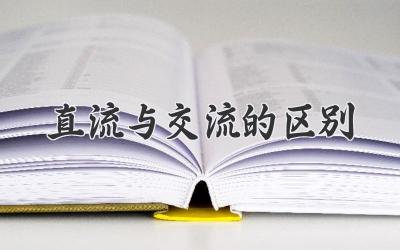 直流与交流的区别